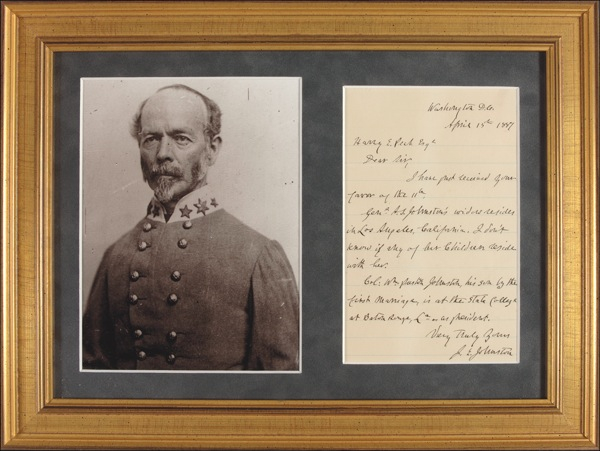 Washington D.C.
April 15th 1887
Harry E. Peck Esqr
Dear Sir,
I have just received your
favor of the 11th.
Genl A. S. Johnston's widow resides
in Los Angeles, California. I don't
know if any of her children reside
with her.
Col: Wm Preston Johnston, his son by the
first marriage, is at the State College
at Baton Rouge, La as its president.
Very truly yours
J. E. Johnston